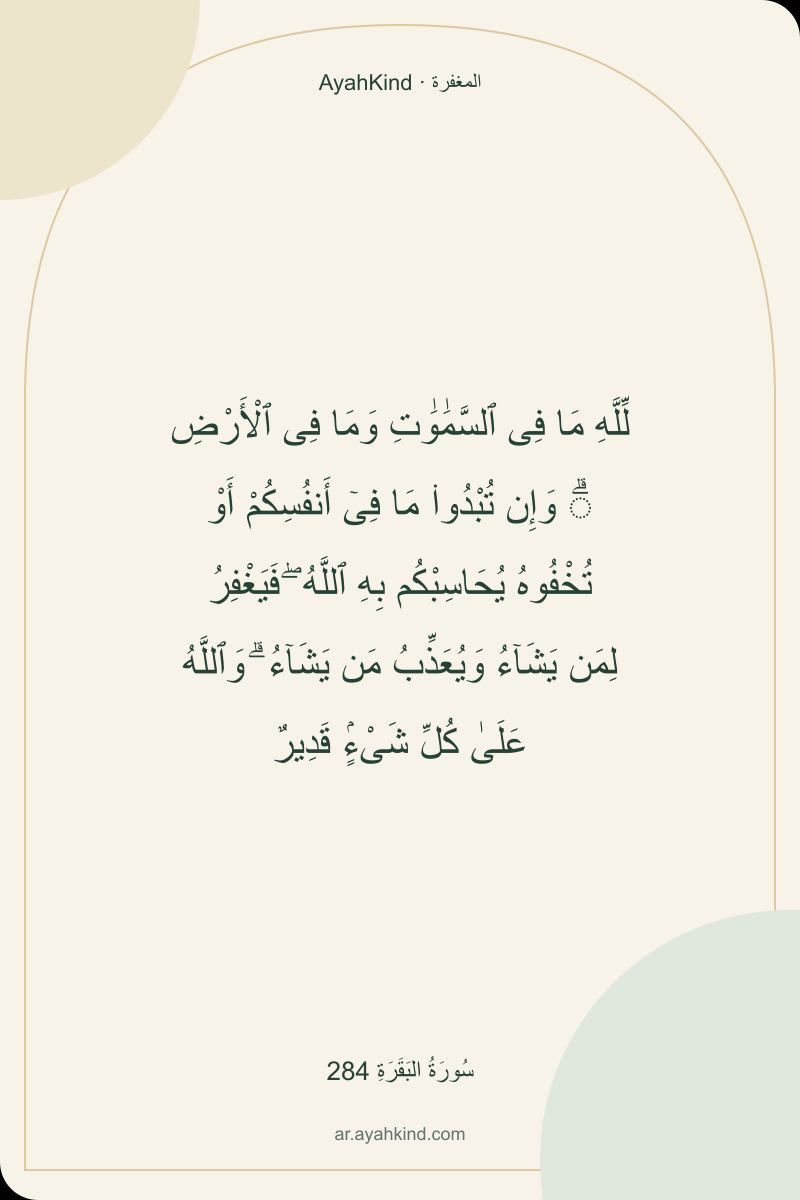 AyahKind · المغفرة
لِّلَّهِ مَا فِى ٱلسَّمَٰوَٰتِ وَمَا فِى ٱلْأَرْضِ
ۗ وَإِن تُبْدُوا۟ مَا فِىٓ أَنفُسِكُمْ أَوْ
تُخْفُوهُ يُحَاسِبْكُم بِهِ ٱللَّهُ ۖ فَيَغْفِرُ
لِمَن يَشَآءُ وَيُعَذِّبُ مَن يَشَآءُ ۗ وَٱللَّهُ
عَلَىٰ كُلِّ شَىْءٍۢ قَدِيرٌ
سُورَةُ البَقَرَةِ 284
ar.ayahkind.com